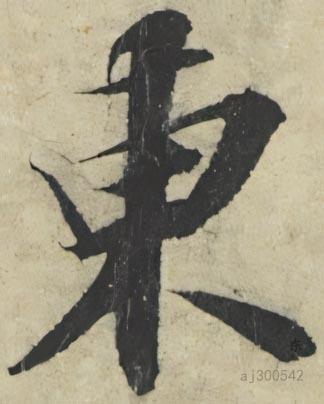 東
东
aj300542